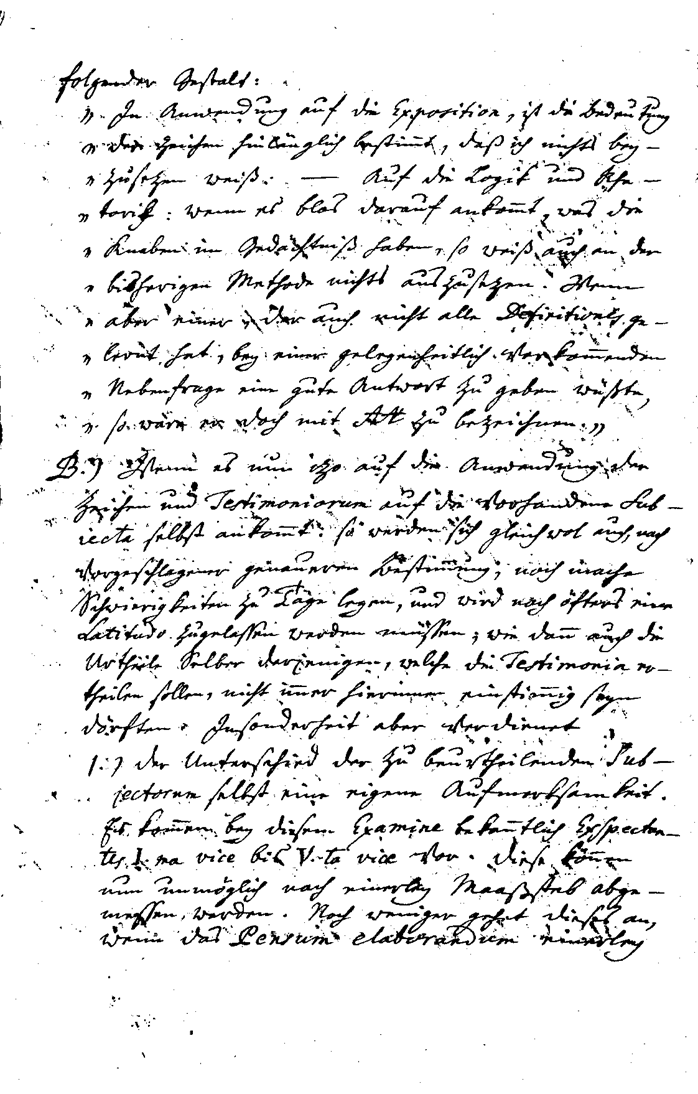 folgender Gestalt:
„ In Anwendung auf die Exposition, ist die Bedeutung
„ der Zeichen hinlänglich bestimmt, daß ich nichts bey-
„ zusetzen weiß: — Auf die Logik und Rhe-
„ torik: wenn es blos darauf ankom̄t, was die
„ Knaben im Gedächtniß haben, so weiß auch an der
„ bisherigen Methode nichts auszusetzen. Wenn
„ aber einer, der auch nicht alle Definitiones ge-
„ lernt hat, bey einer gelegenheitlich vorkom̄enden
„ Nebenfrage eine gute Antwort zu geben wüßte,
„ so wäre er doch mit AA zu bezeichnen. „
B.) Wenn es nun izo auf die Anwendung der
Zeichen und Testimoniorum auf die vorhandene Sub-
iecta selbst ankom̄t: so werden sich gleichwol auch, nach
vorgeschlagener genaueren Bestim̄ung, noch manche
Schwierigkeiten zu Tage legen, und wird noch öfters eine
Latitudo zugelassen werden müssen; wie dann auch die
Urtheile selber derjenigen, welche die Testimonia er-
theilen sollen, nicht im̄er hierinnen einstim̄ig seyn
dörften. Insonderheit aber verdienet
1.) der Unterschied der zu beurtheilenden Sub-
jectorum selbst eine eigene Aufmerksamkeit.
Es kom̄en bey diesem Examine bekan̄tlich Exspectan-
tes I.ma vice bis V.ta vice vor. Diese kön̄en
nun unmöglich nach einerley Maaßstab abge-
messen werden. Noch weniger gehet dieses an,
wenn das Pensum elaborandum einerley